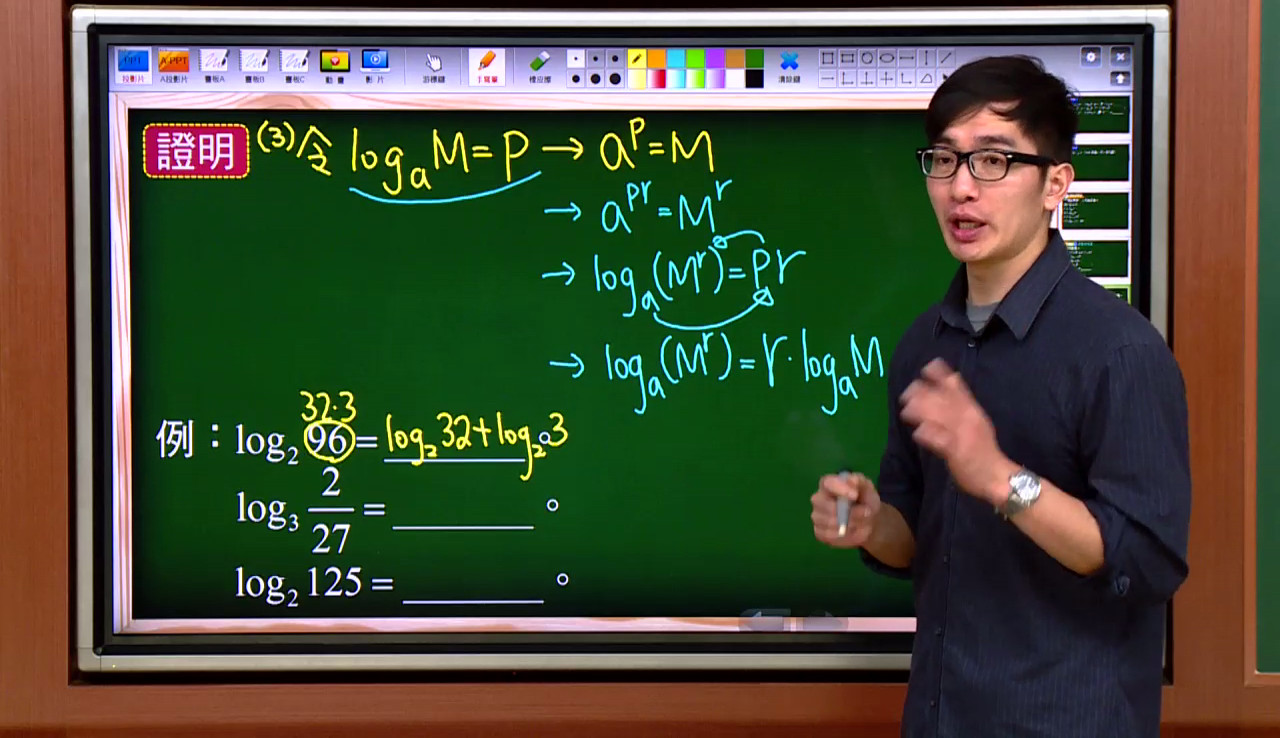 投影片 A投影片 畫板A 畫板B 畫板C 動畫 影片 游標鍵 手寫筆 橡皮擦 清除鍵
證明 (3)令 logₐM=P → aᴾ=M
→ aᴾʳ=Mʳ
→ logₐ(Mʳ)=Pr
→ logₐ(Mʳ)=r·logₐM
32·3
例：log₂ 96= log₂32+log₂3。
log₃ 2/27 = ______。
log₂ 125 = ______。